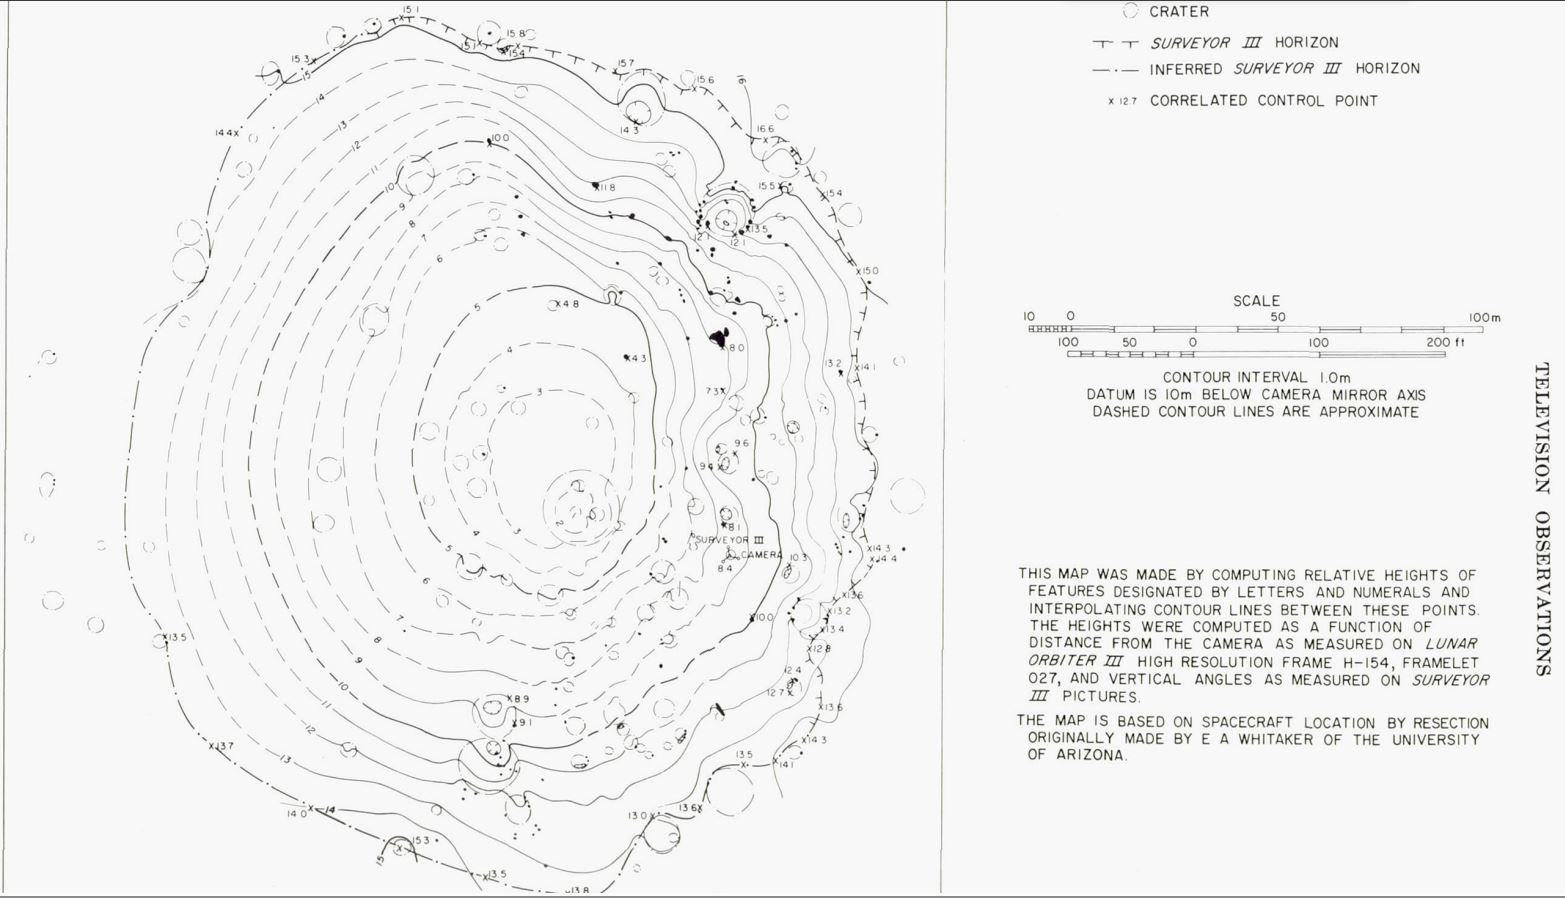 CRATER
SURVEYOR III HORIZON
INFERRED SURVEYOR III HORIZON
x 12.7 CORRELATED CONTROL POINT
SCALE
10 0 50 100m
100 50 0 100 200 ft
CONTOUR INTERVAL 1.0m
DATUM IS 10m BELOW CAMERA MIRROR AXIS
DASHED CONTOUR LINES ARE APPROXIMATE
THIS MAP WAS MADE BY COMPUTING RELATIVE HEIGHTS OF
FEATURES DESIGNATED BY LETTERS AND NUMERALS AND
INTERPOLATING CONTOUR LINES BETWEEN THESE POINTS.
THE HEIGHTS WERE COMPUTED AS A FUNCTION OF
DISTANCE FROM THE CAMERA AS MEASURED ON LUNAR
ORBITER III HIGH RESOLUTION FRAME H-154, FRAMELET
027, AND VERTICAL ANGLES AS MEASURED ON SURVEYOR
III PICTURES.
THE MAP IS BASED ON SPACECRAFT LOCATION BY RESECTION
ORIGINALLY MADE BY E A WHITAKER OF THE UNIVERSITY
OF ARIZONA.
TELEVISION OBSERVATIONS
15.1
15.8
15.1
15.4
15.3
15
15.7
15.6
16
14
14.3
16.6
14.4
13
12
10.0
11
10
11.8
15.5
15.4
9
8
7
12.1
12.1
13.5
6
15.0
5
4.8
4
4.3
8.0
13.2
14.1
3
7.3
9.6
9.4
2
3
4
5
8.1
SURVEYOR III
CAMERA
8.4
10.3
14.3
14.4
6
13.6
13.2
7
10.0
13.4
13.5
8
12.8
9
12.4
12.7
10
8.9
13.6
11
9.1
12
13.7
14.3
13
13.5
14.1
14.0
14
13.6
13.0
15.3
15
13.5
13.8